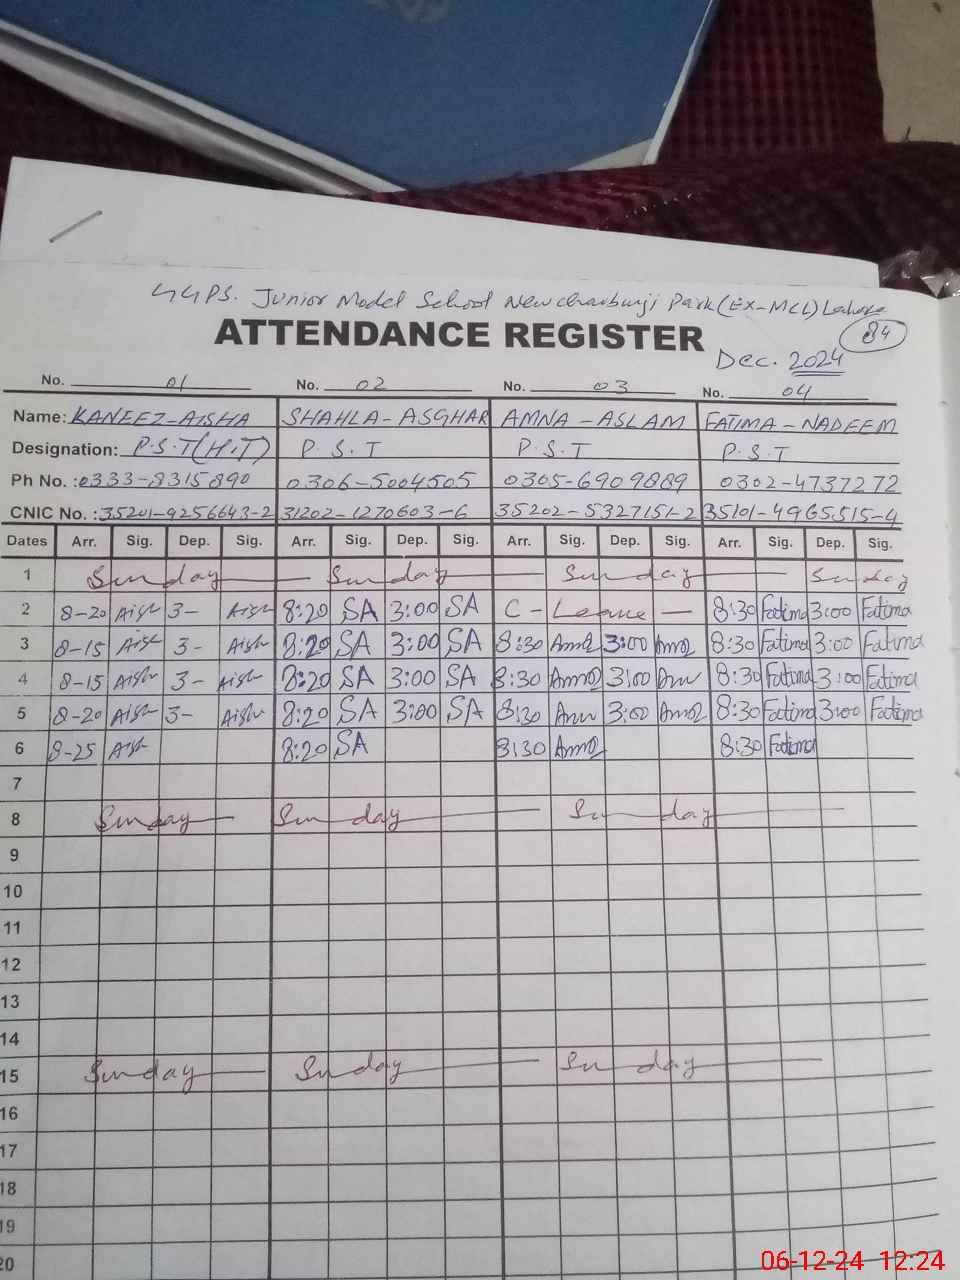 GGPS. Junior Model School Newchauburji Park (EX-MCL) Lahore
ATTENDANCE REGISTER
84
Dec. 2024
No. 01 No. 02 No. 03 No. 04
Name: KANEEZ-AISHA SHAHLA-ASGHAR AMNA-ASLAM FATIMA-NADEEM
Designation: P.S.T(H.T) P.S.T P.S.T P.S.T
Ph No. :0333-8315890 0306-5004505 0305-6909889 0302-4737272
CNIC No. :35201-9256643-2 31202-1270603-6 35202-5327151-2 35101-4965515-4
Dates Arr. Sig. Dep. Sig. Arr. Sig. Dep. Sig. Arr. Sig. Dep. Sig. Arr. Sig. Dep. Sig.
1 Sunday Sunday Sunday Sunday
2 8-20 Aish 3- Aish 8:20 SA 3:00 SA C-Leave 8:30 Fatima 3:00 Fatima
3 8-15 Aish 3- Aish 8:20 SA 3:00 SA 8:30 Amna 3:00 Amna 8:30 Fatima 3:00 Fatima
4 8-15 Aish 3- Aish 8:20 SA 3:00 SA 8:30 Amna 3:00 8:30 Fatima 3:00 Fatima
5 8-20 Aish 3- Aish 8:20 SA 3:00 SA 8:30 3:00 Amna 8:30 Fatima 3:00 Fatima
6 8-25 Aish 8:20 SA 8:30 Amna 8:30 Fatima
7
8 Sunday Sunday Sunday
9
10
11
12
13
14
15 Sunday Sunday Sunday
16
17
18
19
20
06-12-24 12:24